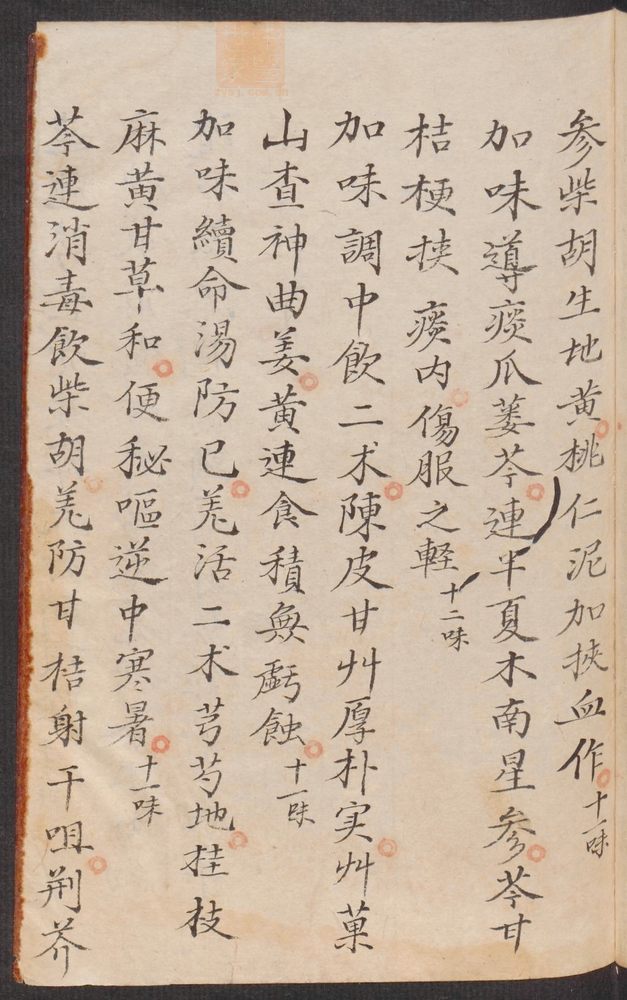 参柴胡生地黄桃仁泥加挾血作十一味
加味導痰瓜蔞芩連半夏木南星参苓甘
桔梗挾痰内傷服之軽十二味
加味調中飲二术陳皮甘艸厚朴实艸菓
山查神曲姜黄連食積無虧蝕十一味
加味續命湯防已羌活二术芎芍地桂枝
麻黄甘草和便秘嘔逆中寒暑十一味
芩連消毒飲柴胡羌防甘桔射干咀荆芥